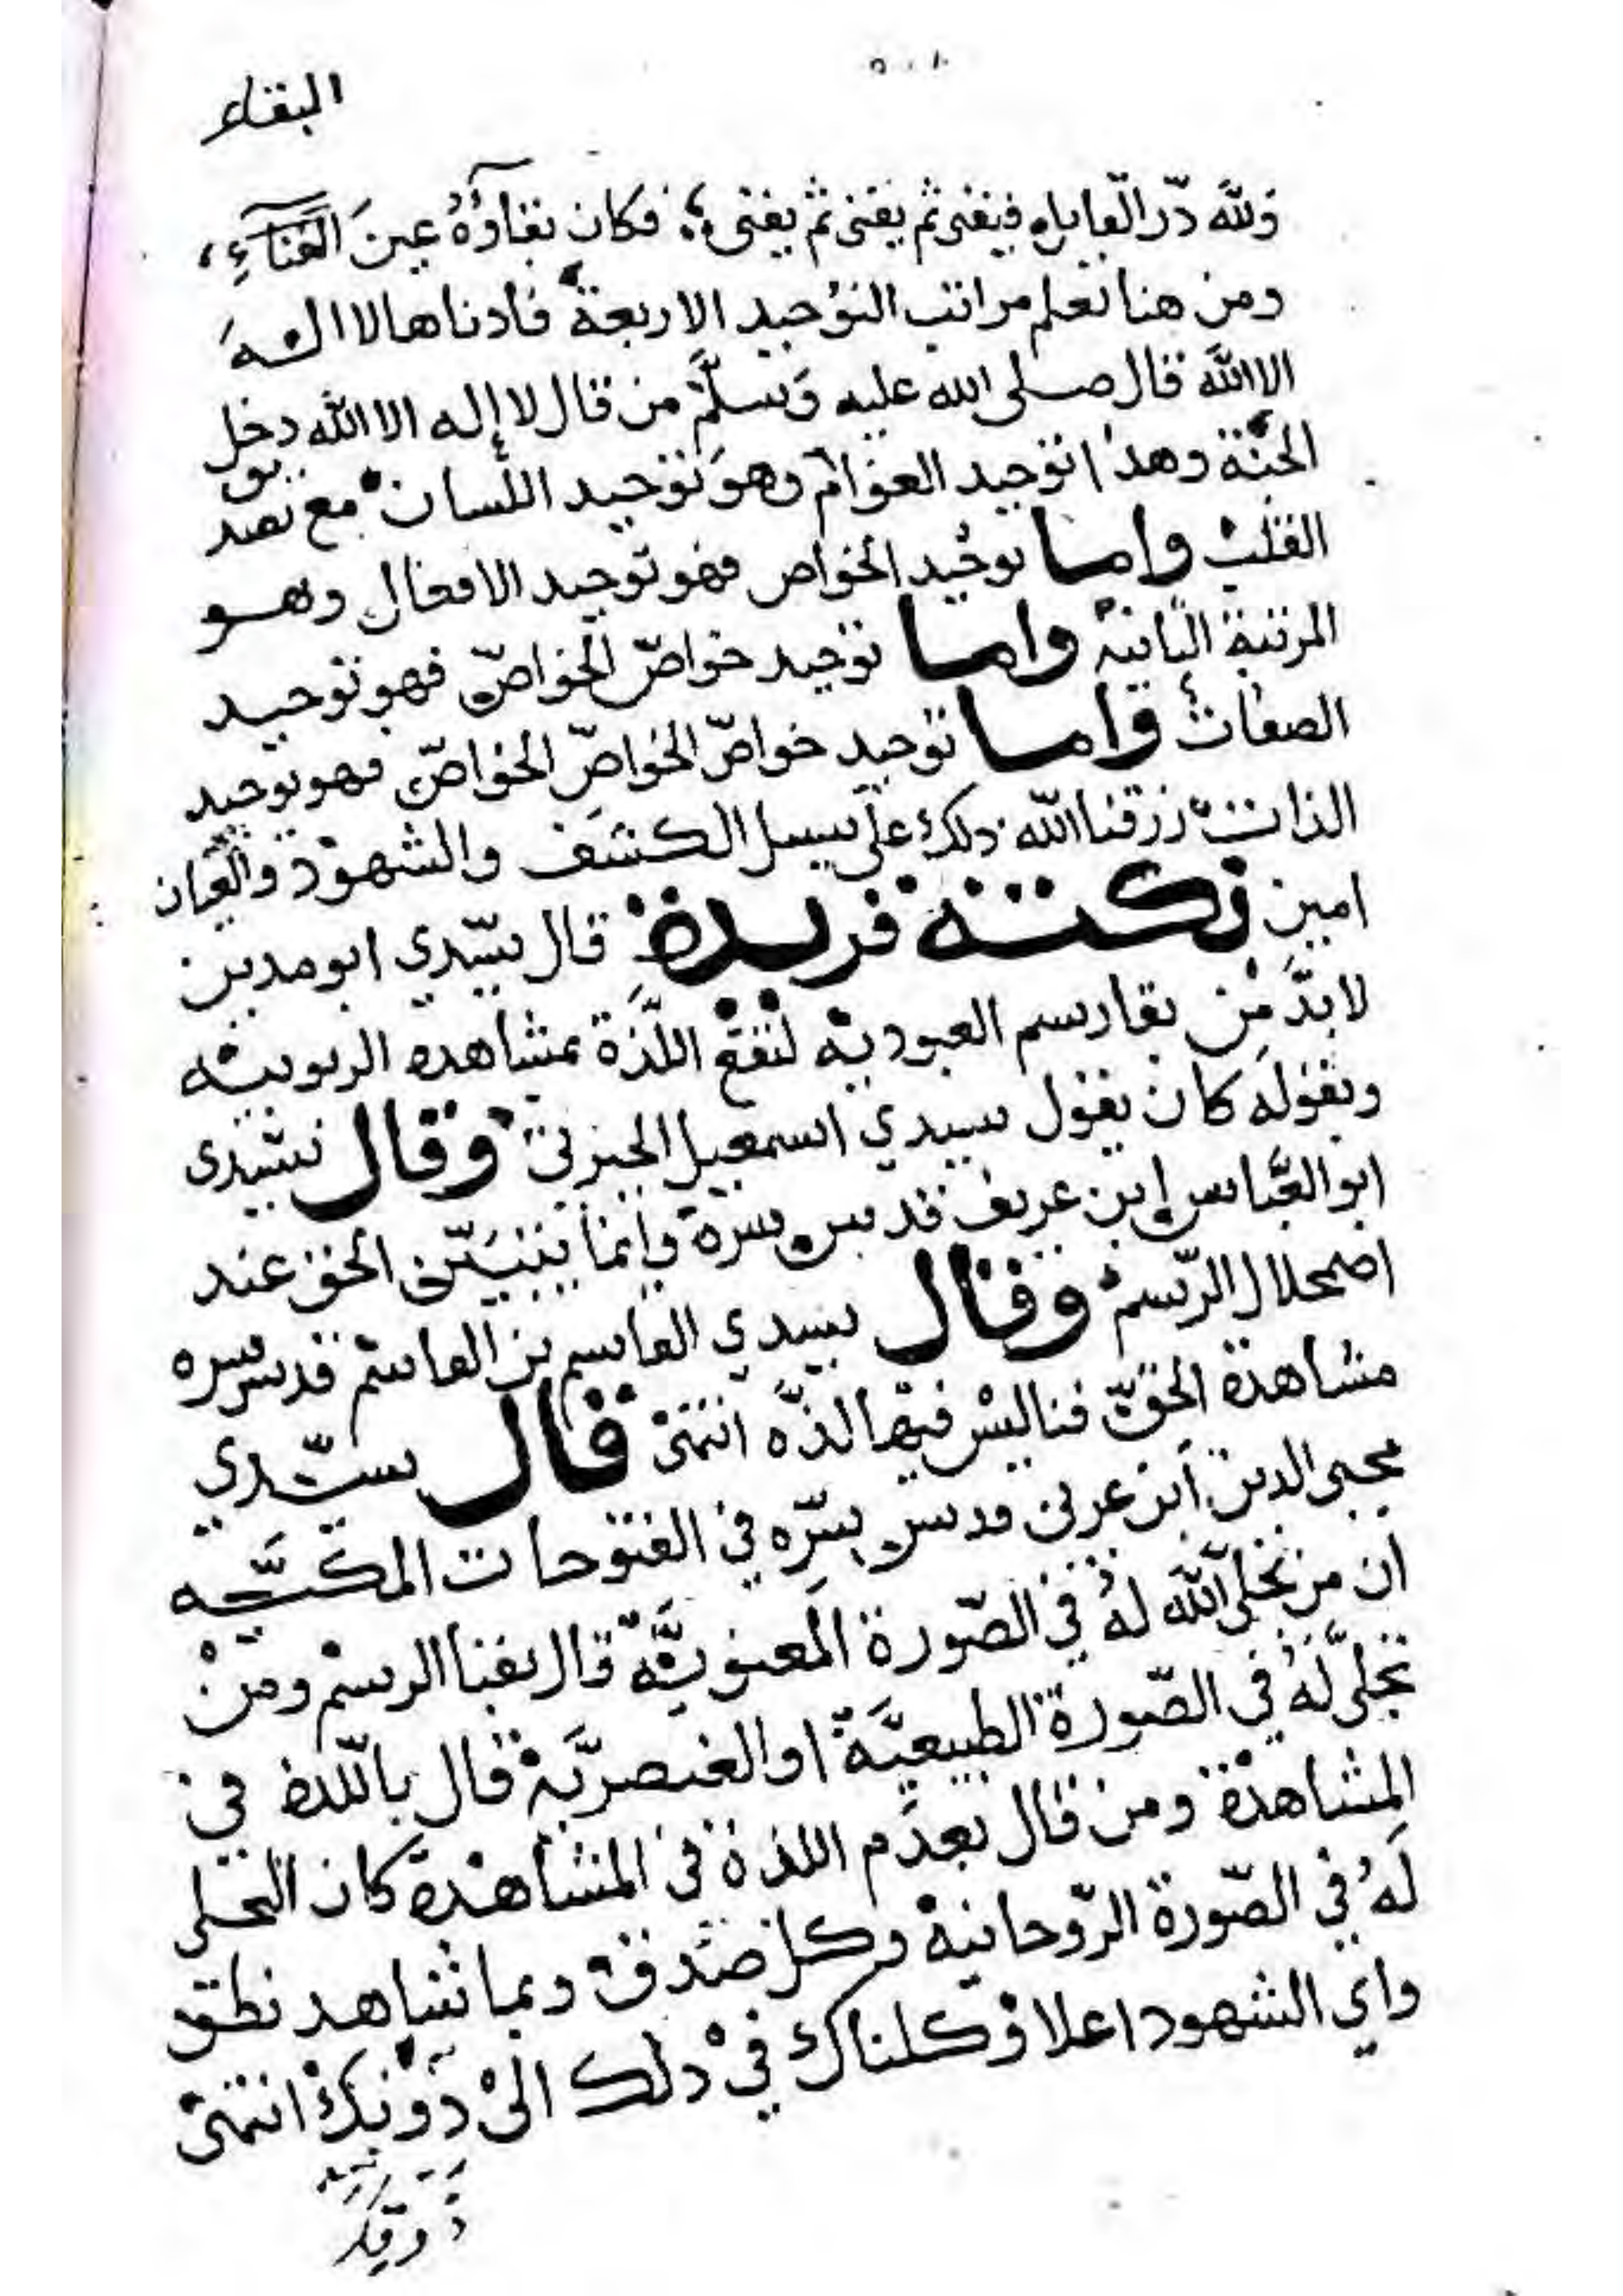 ٥٠٨
البقاء
ولله درّ القايل فيفنى ثم يفنى ثم يفنى؛ فكان بقاؤه عينَ الفناءِ،
ومن هنا تعلم مراتب التوحيد الاربعة فادناها لا اله
الا الله قال صلى الله عليه وَسلّم من قال لا إله الا الله دخل
الجنّة وهذا توحيد العوام وهوَ توحيد اللسان مع تصديق
القلب واما توحيد الخواص فهو توحيد الافعال وهو
المرتبة الثانية واما توحيد خواصّ الخواصّ فهو توحيد
الصفات واما توحيد خواصّ الخواصّ الخواصّ فهو توحيد
الذات رزقنا الله ذلك على سبيل الكشف والشهود والعيان
امين نكتة فريدة قال سيّدي ابو مدين
لا بدّ من بقا رسم العبودية لتقع اللّذة بمشاهدة الربوبية
وبقوله كان يقول سيدي اسمعيل الجبرتي وقال سيّدي
ابو العبّاس ابن عريف قدس سرّه وانما يتبيّن الحق عند
اضمحلال الرّسم وقال سيدي القاسم بن القاسم قدس سره
مشاهدة الحقّ فنا ليس فيها لذّه انتهى قال سيّدي
محيى الدين ابن عربي قدس سرّه في الفتوحات المكيّه
ان من تجلى الله لهُ في الصّورة المعنويّة قال بفنا الرسم ومن
تجلّى لهُ في الصّورة الطبيعيّة او العنصريّة قال باللّذة في
المشاهدة ومن قال بعدَم اللذة في المشاهدة كان التجلي
لَهُ في الصّورة الرّوحانية وكل صَدق وبما شاهد نطق
واي الشهود اعلا وكلناك في ذلك الى ذوقك انتهى